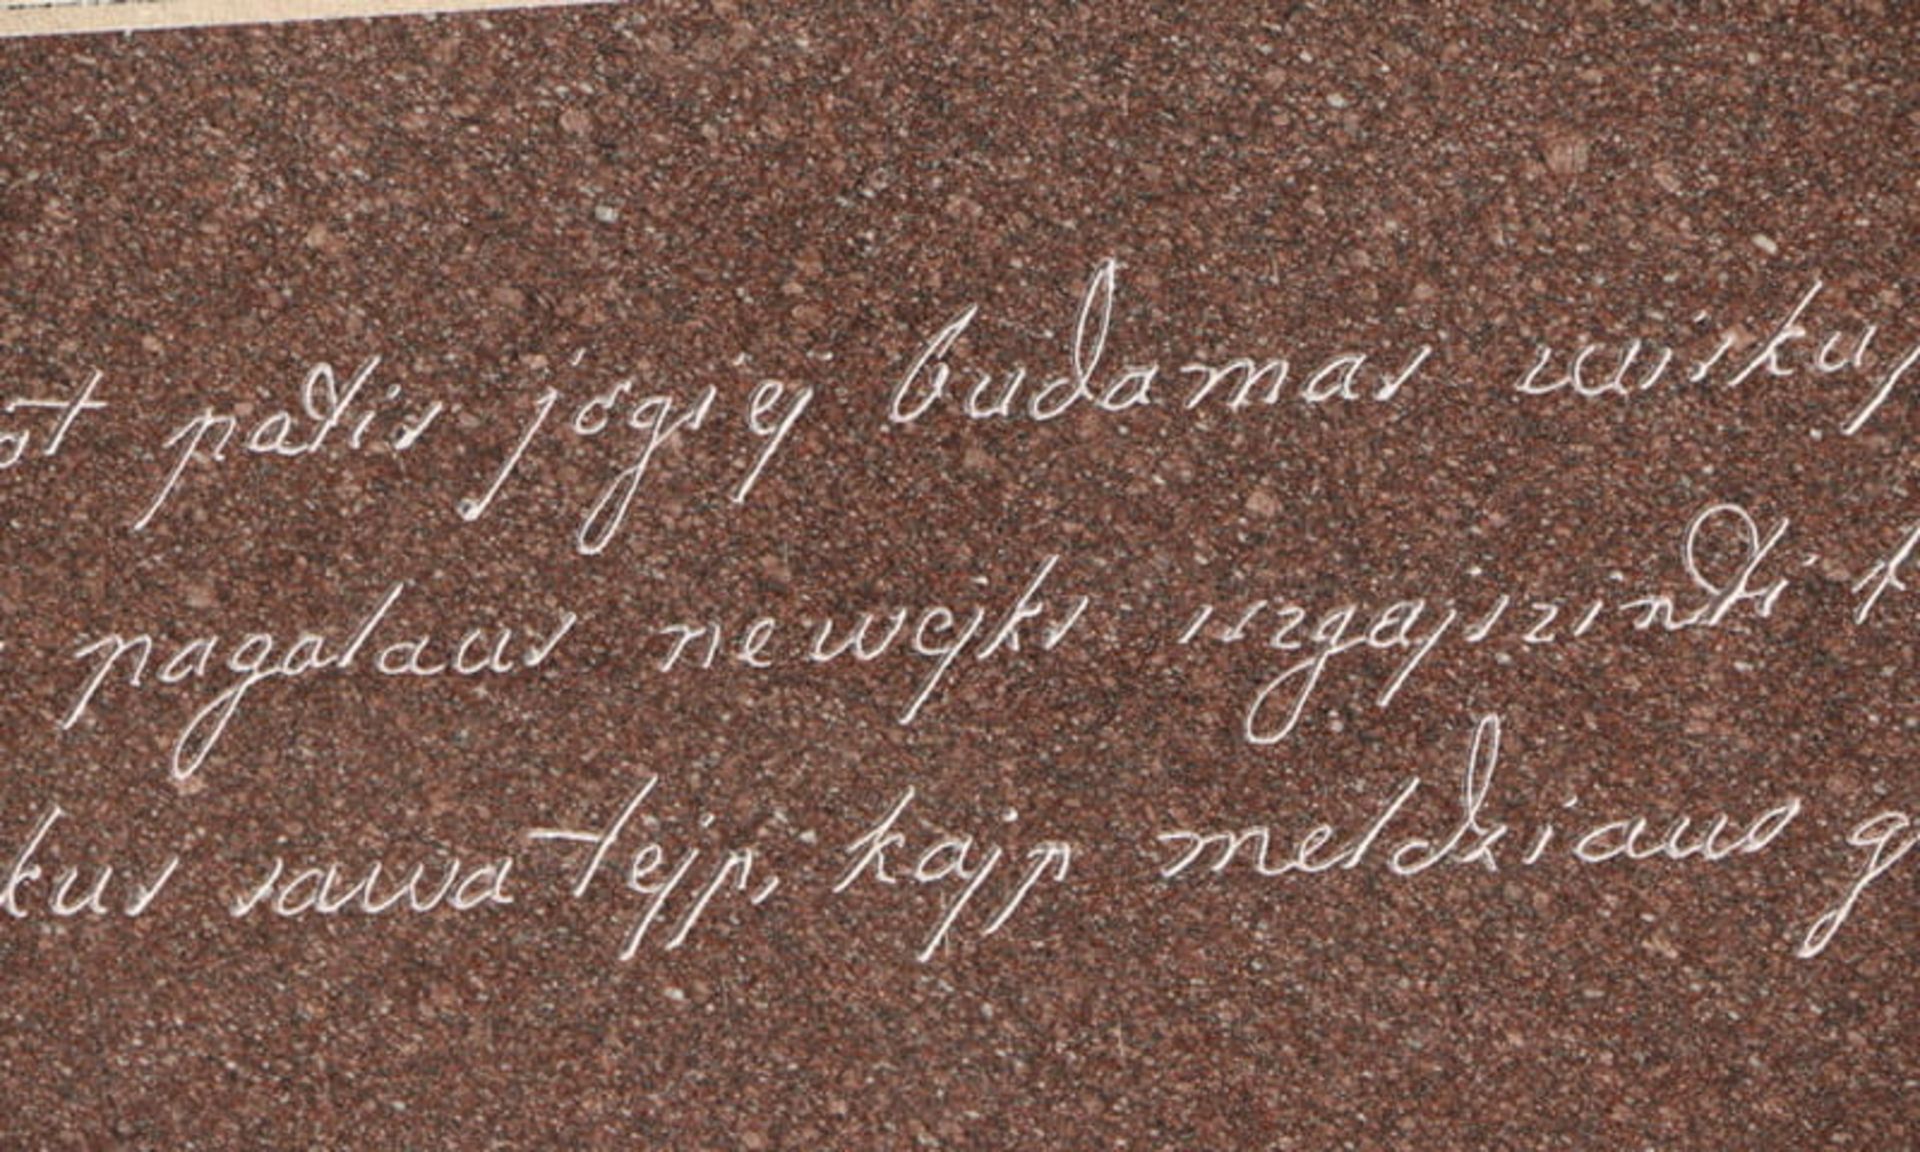 patis jogiej budamas wisku
pagalaus newejks iszgajszinti
kus sawa tejp, kajp meldziaus g